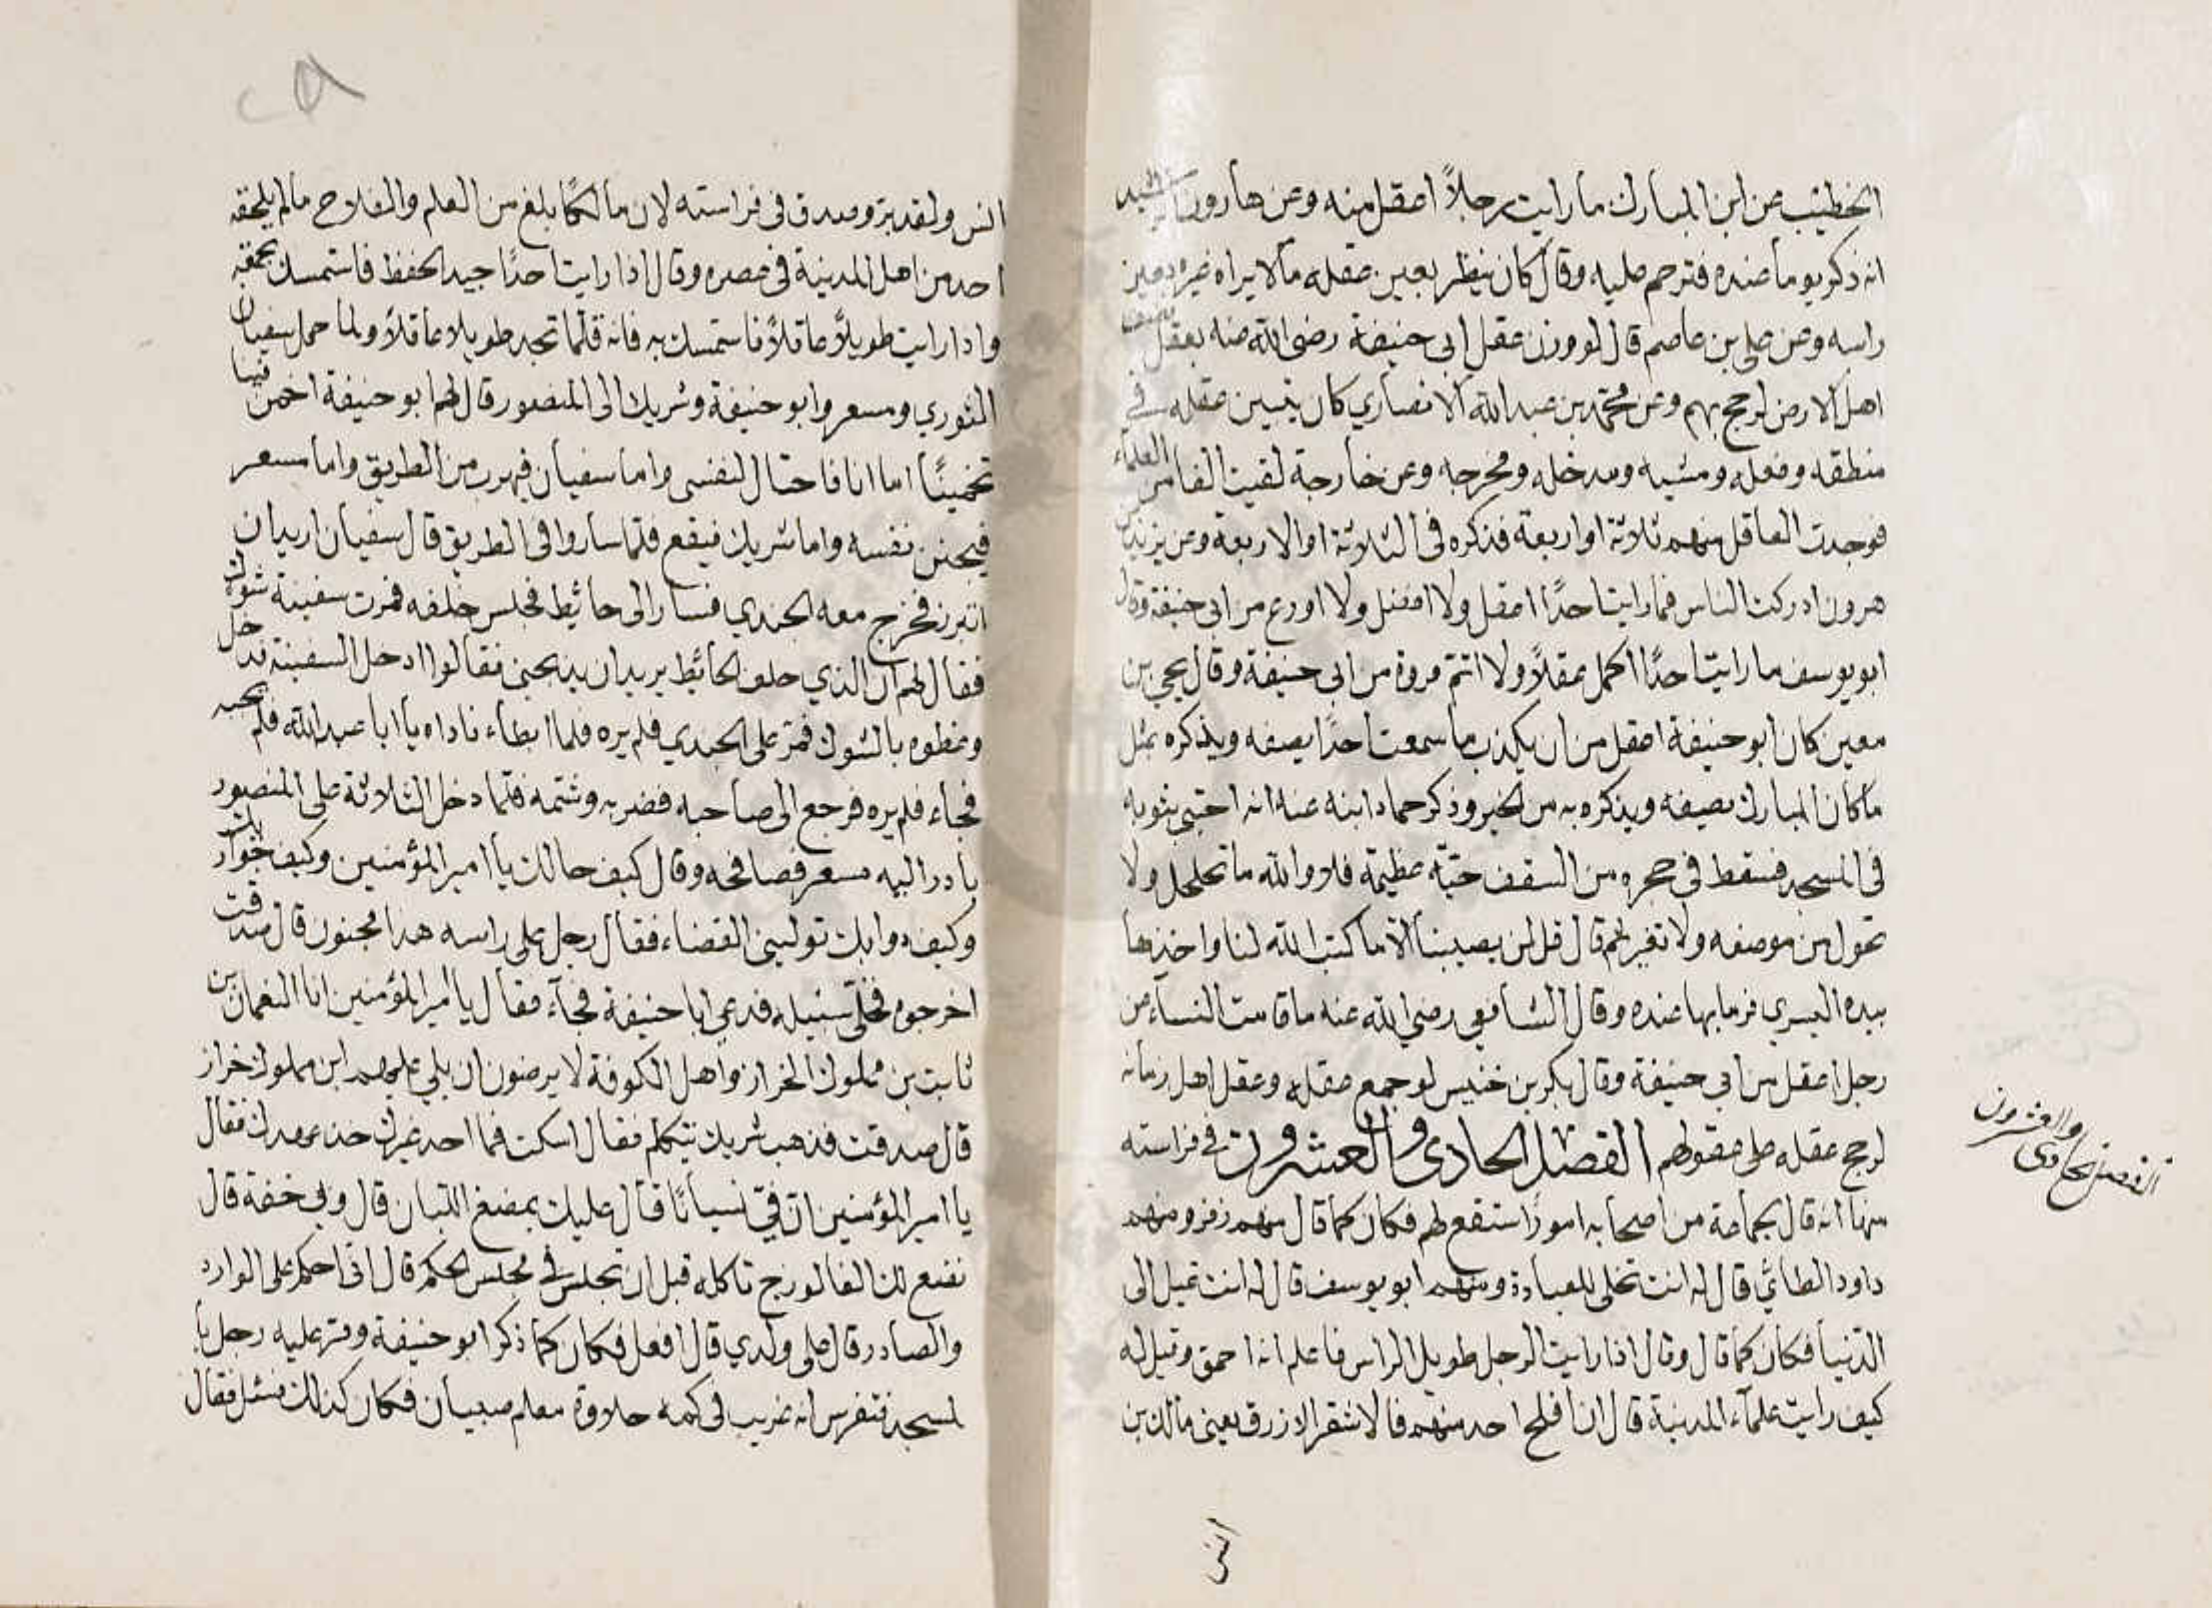 الخطيب عن ابن المبارك ما رايت رجلاً اعقل منه وعن هارون الرشيد
انه ذكر يوما عنده فترحم عليه وقال كان ينظر بعين عقله ما لا يراه غيره بعين
راسه وعن علي بن عاصم قال لو وزن عقل ابي حنيفة رضي الله عنه بعقل نصف
اهل الارض لرجح بهم وعن محمد بن عبد الله الانصاري كان يتبين عقله في
منطقه وفعله ومشيه ومدخله ومخرجه وعن خارجة لقيت الفا من العلماء
فوجدت العاقل منهم ثلاثة او اربعة فذكره في الثلاثة او الاربعة وعن يزيد بن
هرون ادركت الناس فما رايت احدًا اعقل ولا افضل ولا اورع من ابي حنيفة وقال
ابو يوسف ما رايت احدًا اكمل عقلاً ولا اتم مروة من ابي حنيفة وقال يحيى بن
معين كان ابو حنيفة اعقل من ان يكذب ما سمعت احدًا يصفه ويذكره بمثل
ما كان المبارك يصيفه ويذكره به من الخير وذكر حماد ابنه عنه انه احتبى بثوبه
في المسجد فسقط في حجره من السقف حيّة عظيمة فلا والله ما تحلحل ولا
تحول من موضعه ولا تغير ثم قال قل لن يصيبنا الا ما كتب الله لنا واخذها
بيده اليسرى فرما بها عنده وقال الشافعي رضي الله عنه ما قامت النساء عن
رجل اعقل من ابي حنيفة وقال بكر بن خنيس لو جمع عقله وعقل اهل زمانه
لرجح عقله على عقولهم الفصل الحادي والعشرون في فراسته
منها انه قال لجماعة من اصحابه امورًا ستقع لهم فكان كما قال منهم زفر ومنهم
داود الطائي قال له انت تخلى للعبادة ومنهم ابو يوسف قال له انت تميل الى
الدنيا فكان كما قال وقال اذا رايت الرجل طويل الراس فاعلم انه احمق وقيل له
كيف رايت علماء المدينة قال ان افلح احد منهم فالاشقر الازرق يعني مالك بن
انس
الفصل الحادي والعشرون
٢٨
انس ولقد بر وصدق في فراسته لان مالكًا بلغ من العلم والفلاح ما لم يلحقه
احد من اهل المدينة في عصره وقال اذا رايت احدًا جيد الحفظ فاستمسك بحمقه
واذا رايت طويلاً عاقلاً فاستمسك به فانه قلما تجد طويلا عاقلاً ولما حمل سفيان
الثوري ومسعر وابو حنيفة وشريك الى المنصور قال لهم ابو حنيفة اخمن فينا
تخمينًا اما انا فاحتال لنفسي واما سفيان فيهرب من الطريق واما مسعر
فيجنن نفسه واما شريك فيقع فلما ساروا في الطريق قال سفيان اريد ان
اتبرز فخرج معه الجندي فسار الى حائيط فجلس خلفه فمرت سفينة شوك
فقال لهم ان الذي خلف الحائيط يريد ان يذبحني فقالوا ادخل السفينة فدخل
وغطوه بالشوك فمر على الجندي فلم يره فلما ابطاء ناداه يا ابا عبد الله فلم يجبه
فجاء فلم يره فرجع الى صاحبه فضربه وشتمه فلما دخل الثلاثة على المنصور
بادر اليه مسعر فصافحه وقال كيف حالك يا امير المؤمنين وكيف جوارك
وكيف دوابك توليني القضاء فقال رجل على راسه هذا مجنون قال صدقت
اخرجوه فخلى سبيله فدعي ابا حنيفة فجاء فقال يا امير المؤمنين انا النعمان بن
ثابت بن مملوك الخراز واهل الكوفة لا يرضون ان يلي عليهم ابن مملوك خراز
قال صدقت فذهب شريك يتكلم فقال اسكت فما احد غيرك خذ عهدك فقال
يا امير المؤمنين ان في نسيانًا قال عليك بمضغ اللبان قال وبي خفة قال
نصنع لك الفالوزج تاكله قبل ان تجلس في مجلس الحكم قال اني احكم على الوارد
والصادر قال على ولدي قال افعل فكان كما ذكر ابو حنيفة ومر عليه رجل با
لمسجد فتفرس انه غريب في كمه حلاوة معلم صبيان فكان كذلك فسئل فقال